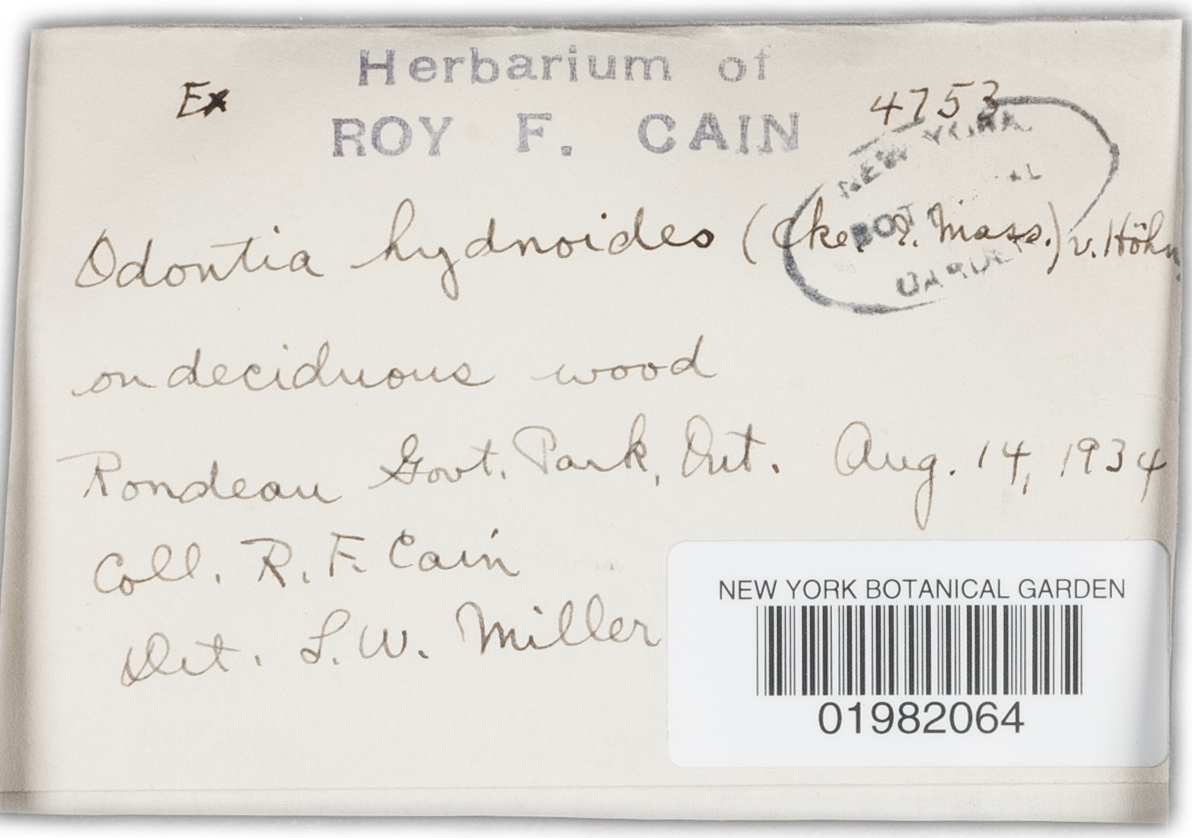 Herbarium of
Ex
4753
ROY F. CAIN
NEW YORK
BOTANICAL
GARDEN
Odontia hydnoides (Cke. & Mass.) v. Höhn.
on deciduous wood
Rondeau Govt. Park, Ont. Aug. 14, 1934
Coll. R. F. Cain
Det. L. W. Miller
NEW YORK BOTANICAL GARDEN
01982064